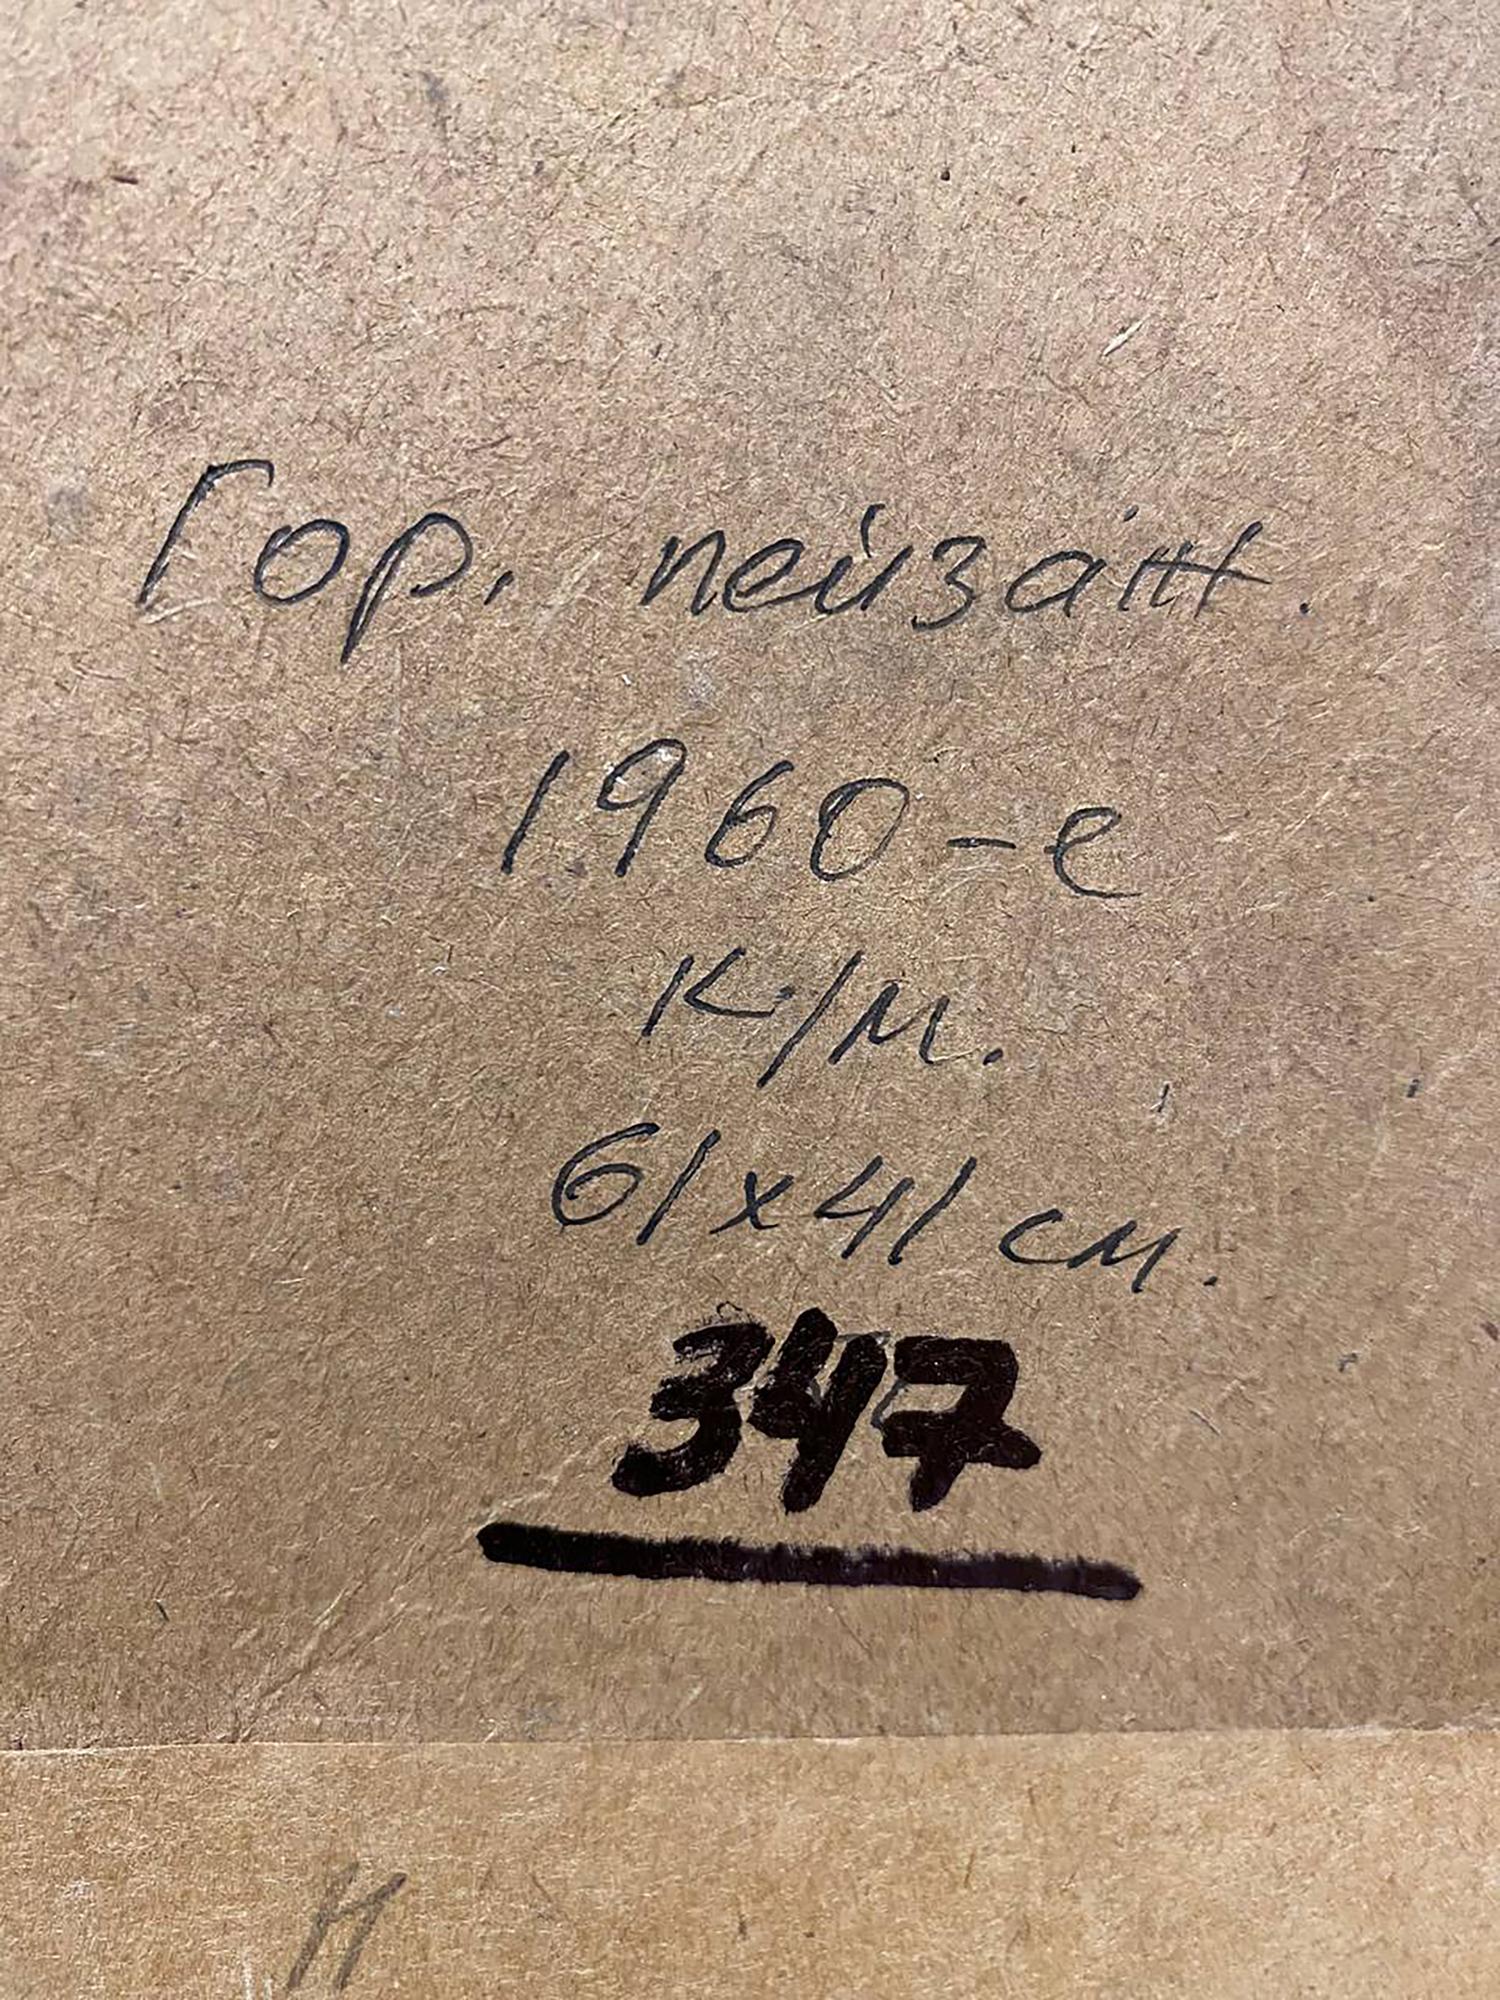 Гор. пейзаж.
1960-е
К/м.
61х41 см.
347